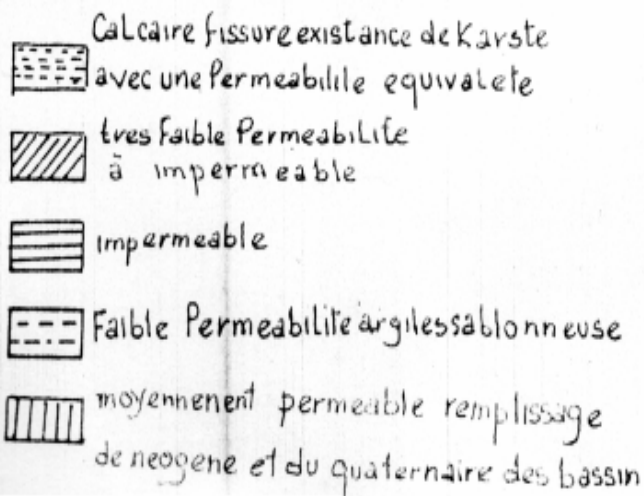 Calcaire fissure existance de Karste
avec une Permeabilile equivalete
tres Faible Permeabilite
à impermeable
impermeable
Faible Permeabilite argiles sablonneuse
moyennenent permeable remplissage
de neogene et du quaternaire des bassin